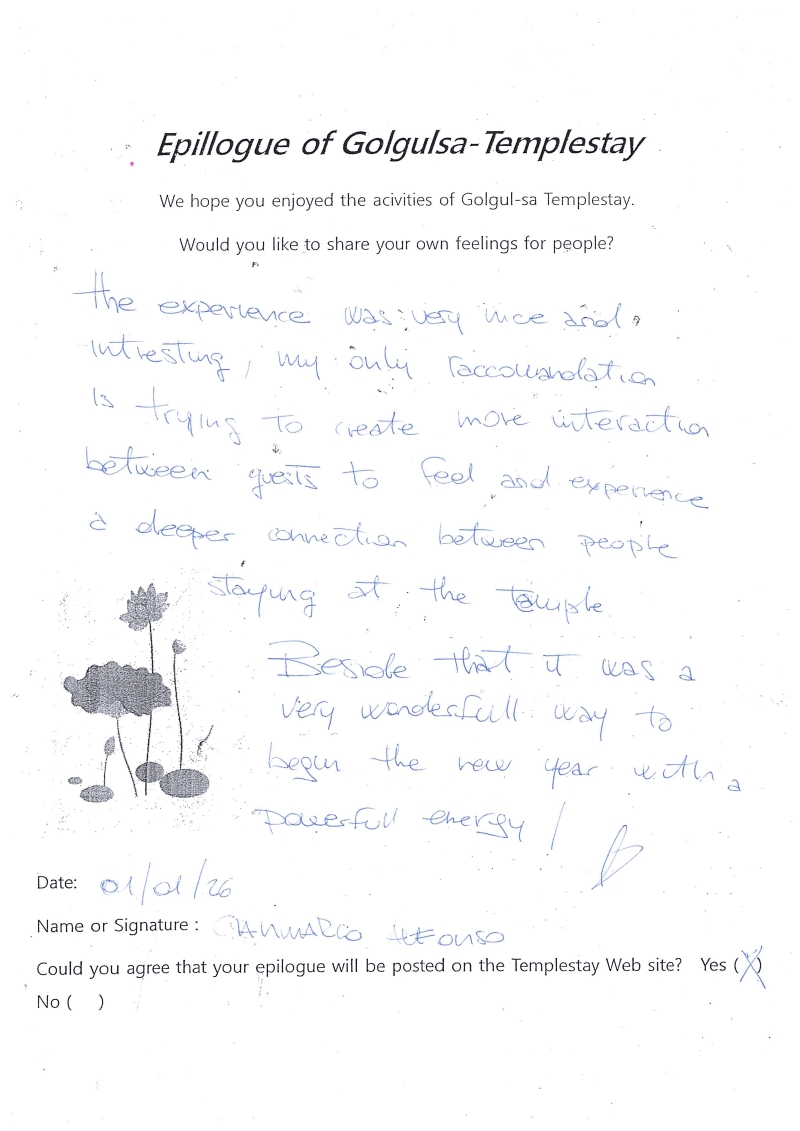 Epillogue of Golgulsa-Templestay
We hope you enjoyed the acivities of Golgul-sa Templestay.
Would you like to share your own feelings for people?
the experience was very nice and
intresting, my only raccomandation
is trying to create more interaction
between guests to feel and experience
a deeper connection between people
staying at the temple
Beside that it was a
very wonderfull way to
begin the new year with a
powerfull energy!
Date: 01/01/26
Name or Signature : GIANMARCO ALFONSO
Could you agree that your epilogue will be posted on the Templestay Web site? Yes (X)
No ( )